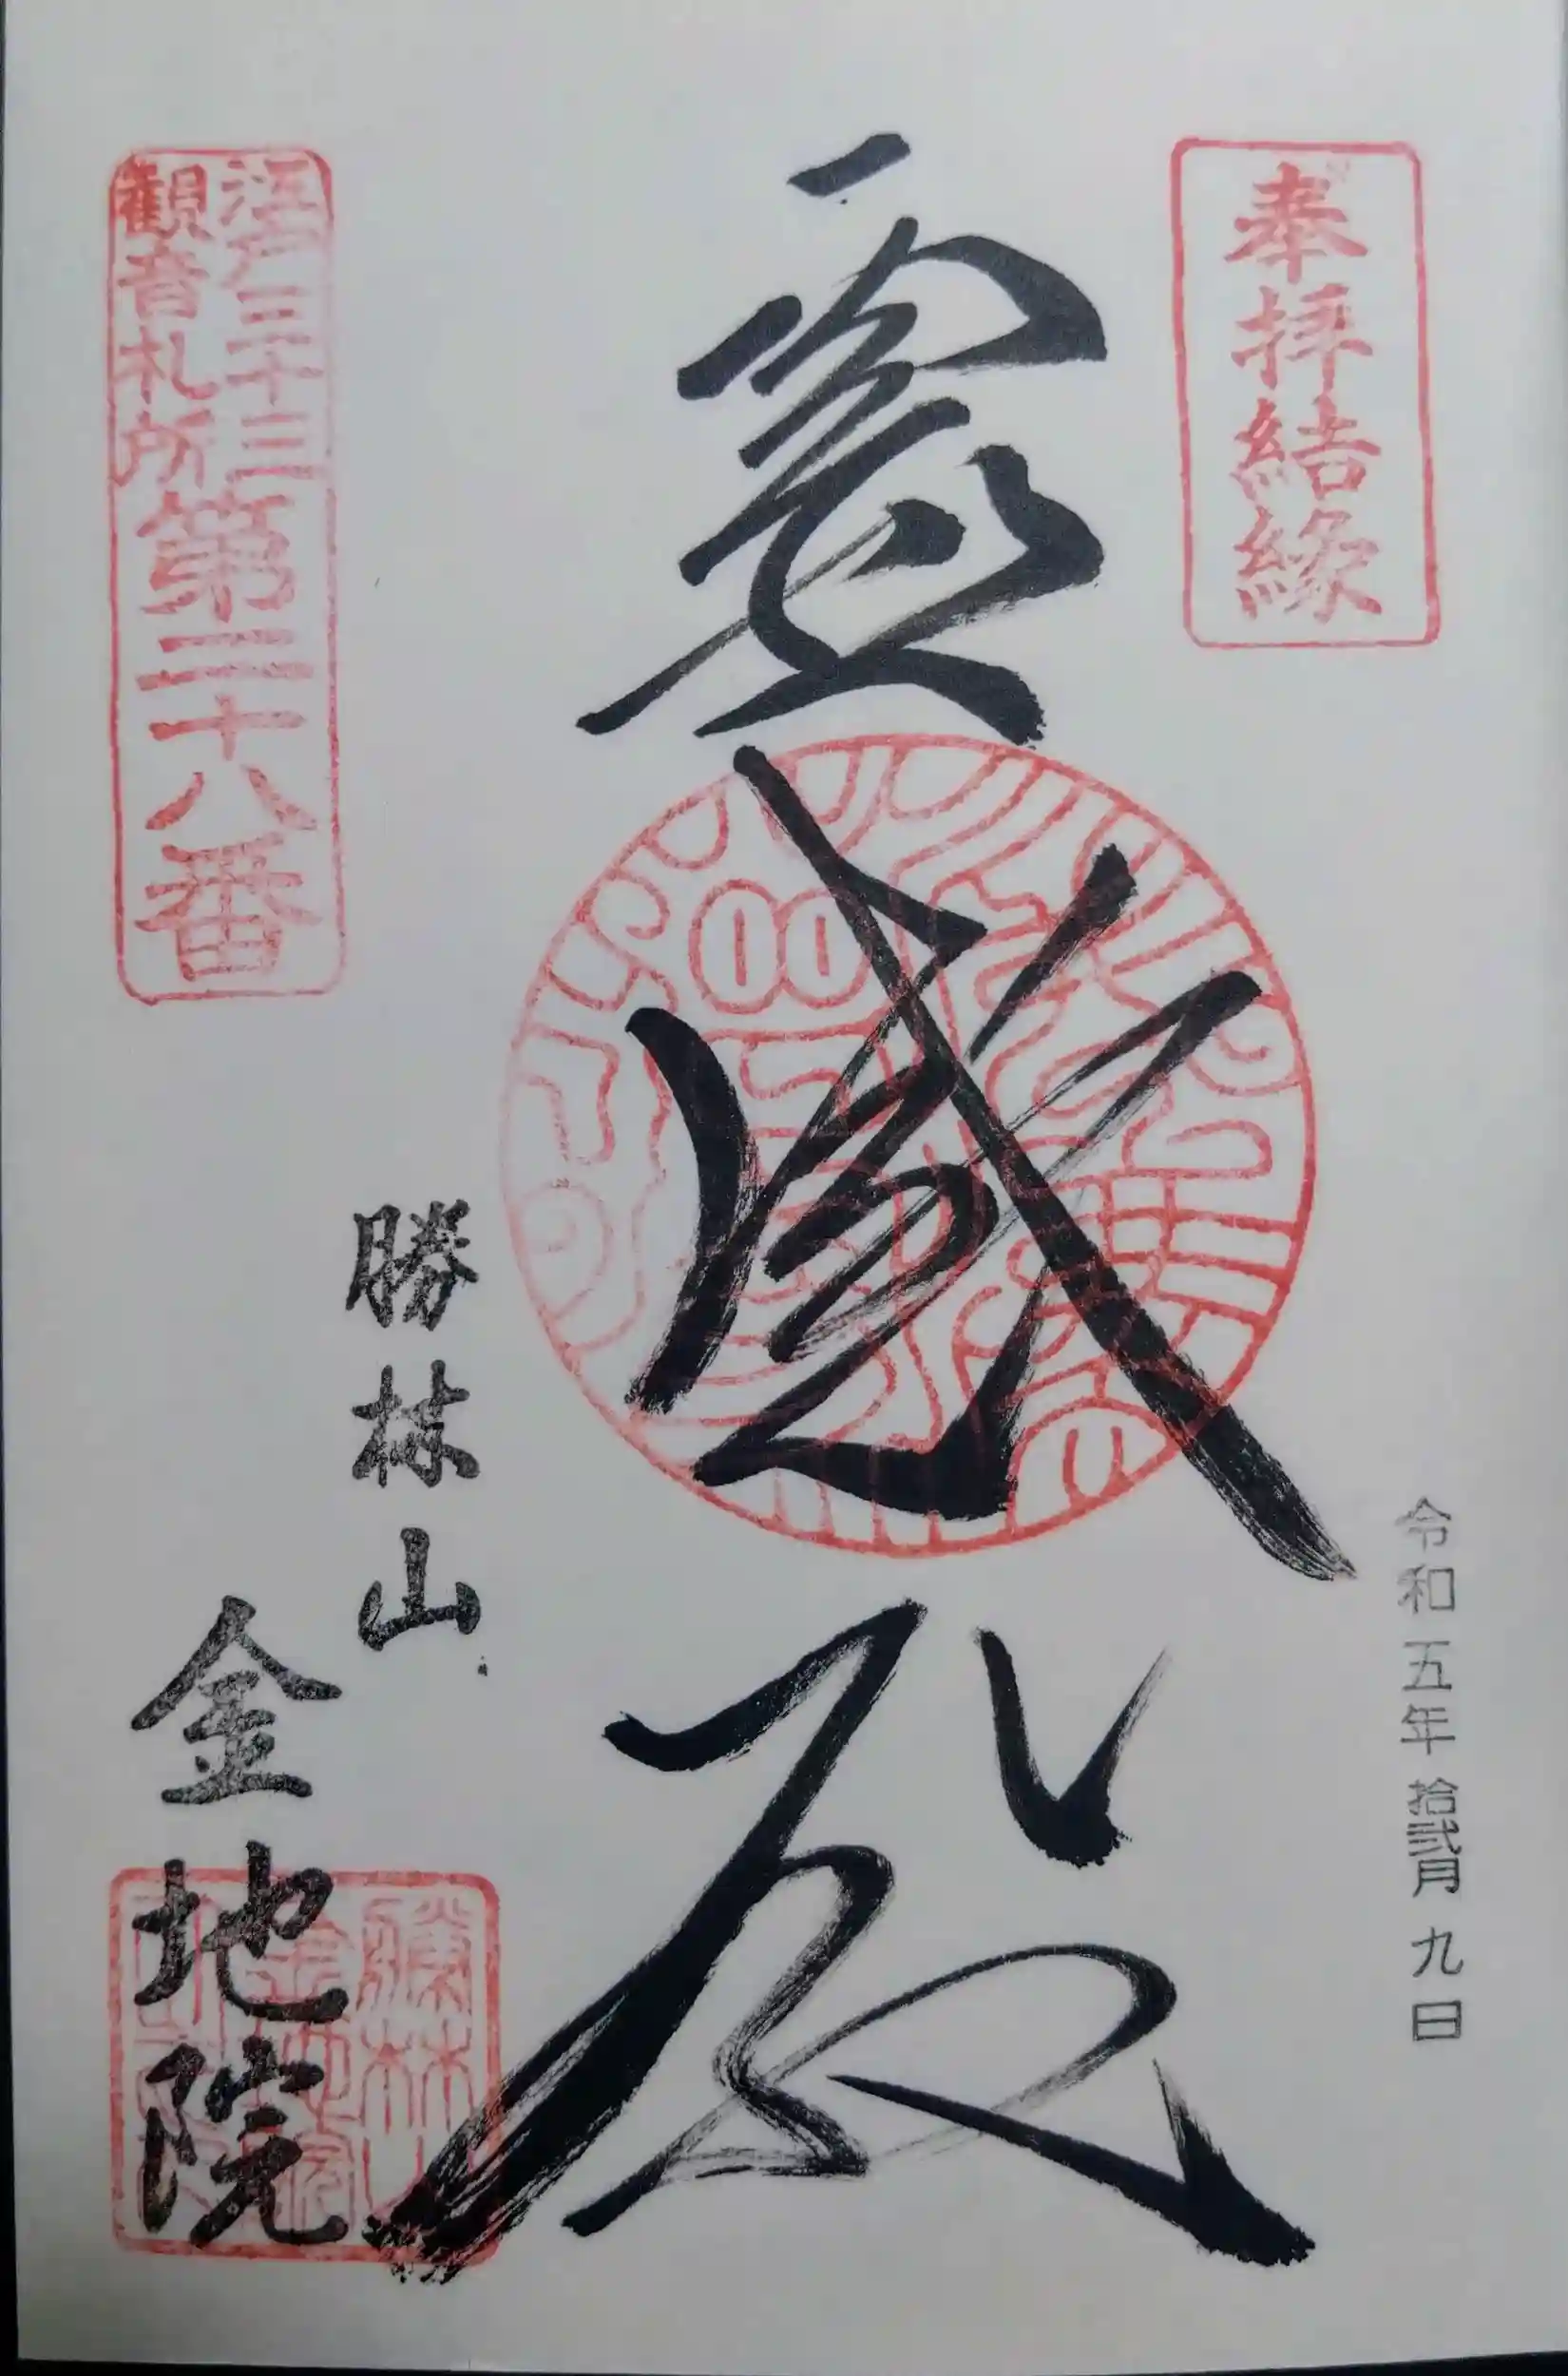 奉拝結縁
令和五年拾弐月九日
霊感殿
江戸三十三
觀音札所
第二十八番
勝林山
金地院